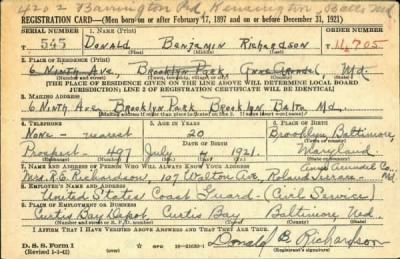 4202 Barrington Rd Kensington Balto Md.
REGISTRATION CARD—(Men born on or after February 17, 1897 and on or before December 31, 1921)
SERIAL NUMBER 1. NAME (Print) ORDER NUMBER
545 DONALD BENJAMIN RICHARDSON 14,705
(First) (Middle) (Last)
2. PLACE OF RESIDENCE (Print)
6 NINTH AVE, BROOKLYN PARK ANNE ARUNDEL, Md.
(THE PLACE OF RESIDENCE GIVEN ON THE LINE ABOVE WILL DETERMINE LOCAL BOARD
JURISDICTION; LINE 2 OF REGISTRATION CERTIFICATE WILL BE IDENTICAL)
3. MAILING ADDRESS
6 NINTH AVE BROOKLYN PARK BROOKLYN BALTO Md.
4. TELEPHONE 5. AGE IN YEARS 6. PLACE OF BIRTH
NONE - nearest 20 Brooklyn Baltimore,
DATE OF BIRTH
Prospect 497 July 4 1921. Maryland
7. NAME AND ADDRESS OF PERSON WHO WILL ALWAYS KNOW YOUR ADDRESS Anne Arundel Co.
Mrs. R.E. Richardson, 107 Walton Ave, Roland Terrace - Md.
8. EMPLOYER'S NAME AND ADDRESS
United States Coast Guard - (Civil Service)
9. PLACE OF EMPLOYMENT OR BUSINESS
Curtis Bay Depot, Curtis Bay Baltimore Md.
I AFFIRM THAT I HAVE VERIFIED ABOVE ANSWERS AND THAT THEY ARE TRUE.
D. S. S. Form 1 Donald B. Richardson
(Revised 1-1-42) (Registrant's signature)